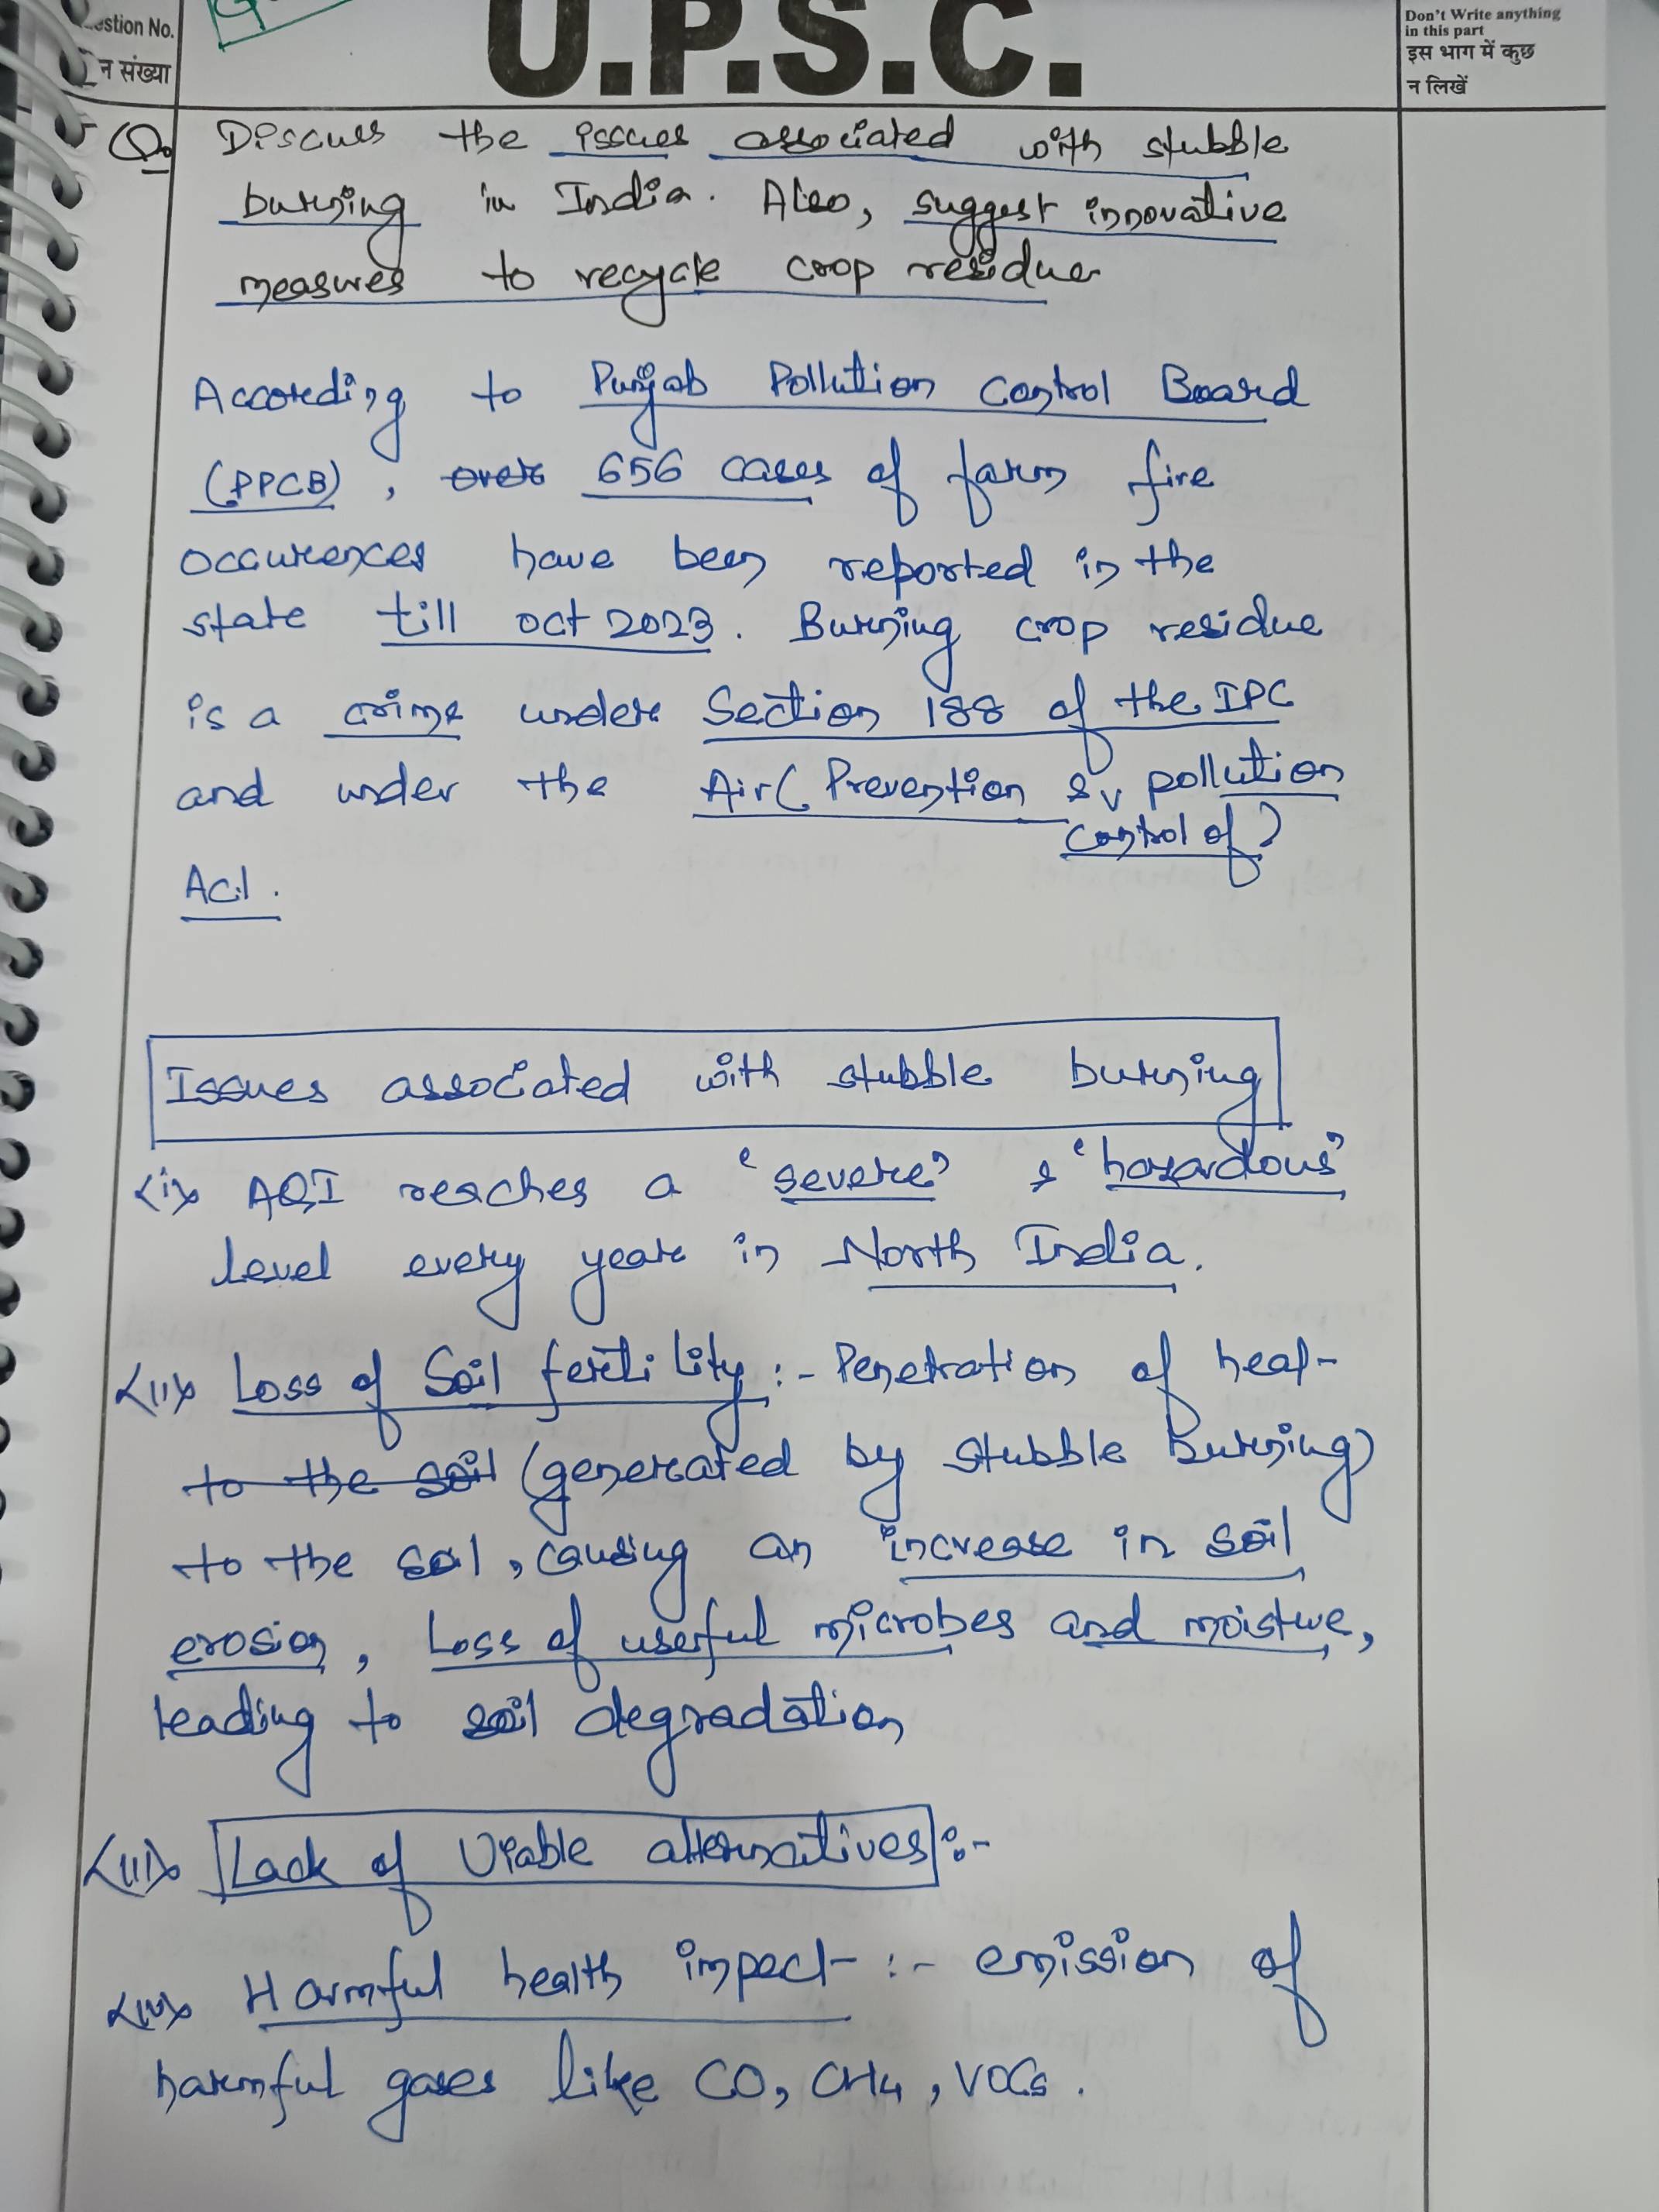 estion No.
न संख्या
U.P.S.C.
Don't Write anything
in this part
इस भाग में कुछ
न लिखें
Q. Discuss the issues associated with stubble
burning in India. Also, suggest innovative
measures to recycle crop residue
According to Punjab Pollution Control Board
(PPCB), over 656 cases of farm fire
occurences have been reported in the
state till oct 2023. Burning crop residue
is a crime under Section 188 of the IPC
and under the Air (Prevention & pollution
control of)
Act.
Issues associated with stubble burning
<i> AQI reaches a 'severe' & 'hazardous'
level every year in North India.
<ii> Loss of Soil fertility :- Penetration of heat
to the soil (generated by stubble Burning)
to the soil, causing an increase in soil
erosion, Loss of useful microbes and moisture,
leading to soil degradation
<iii> Lack of Viable alternatives :-
<iv> Harmful health impact :- emission of
harmful gases like CO, CH4, VOCs.